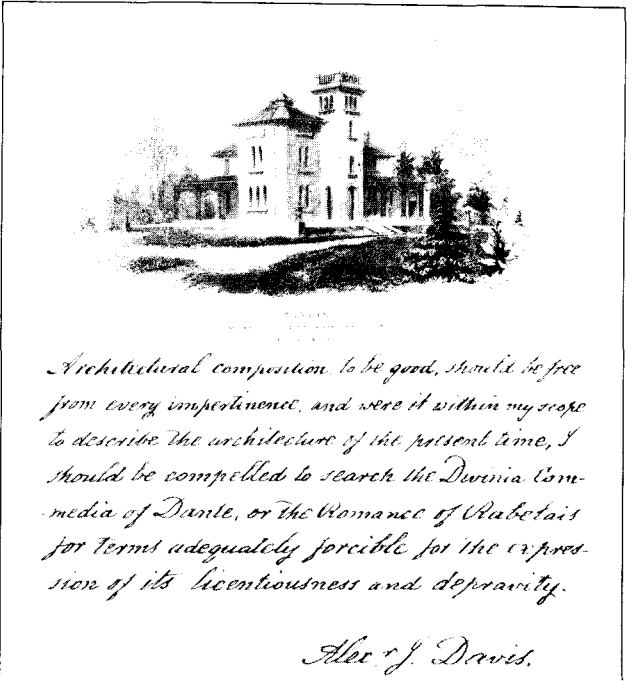 Architectural composition to be good, should be free
from every impertinence, and were it within my scope
to describe the architecture of the present time, I
should be compelled to search the Divinia Com-
media of Dante, or the Romance of Rabelais
for terms adequately forcible for the expres-
sion of its licentiousness and depravity.
Alex.r J. Davis.